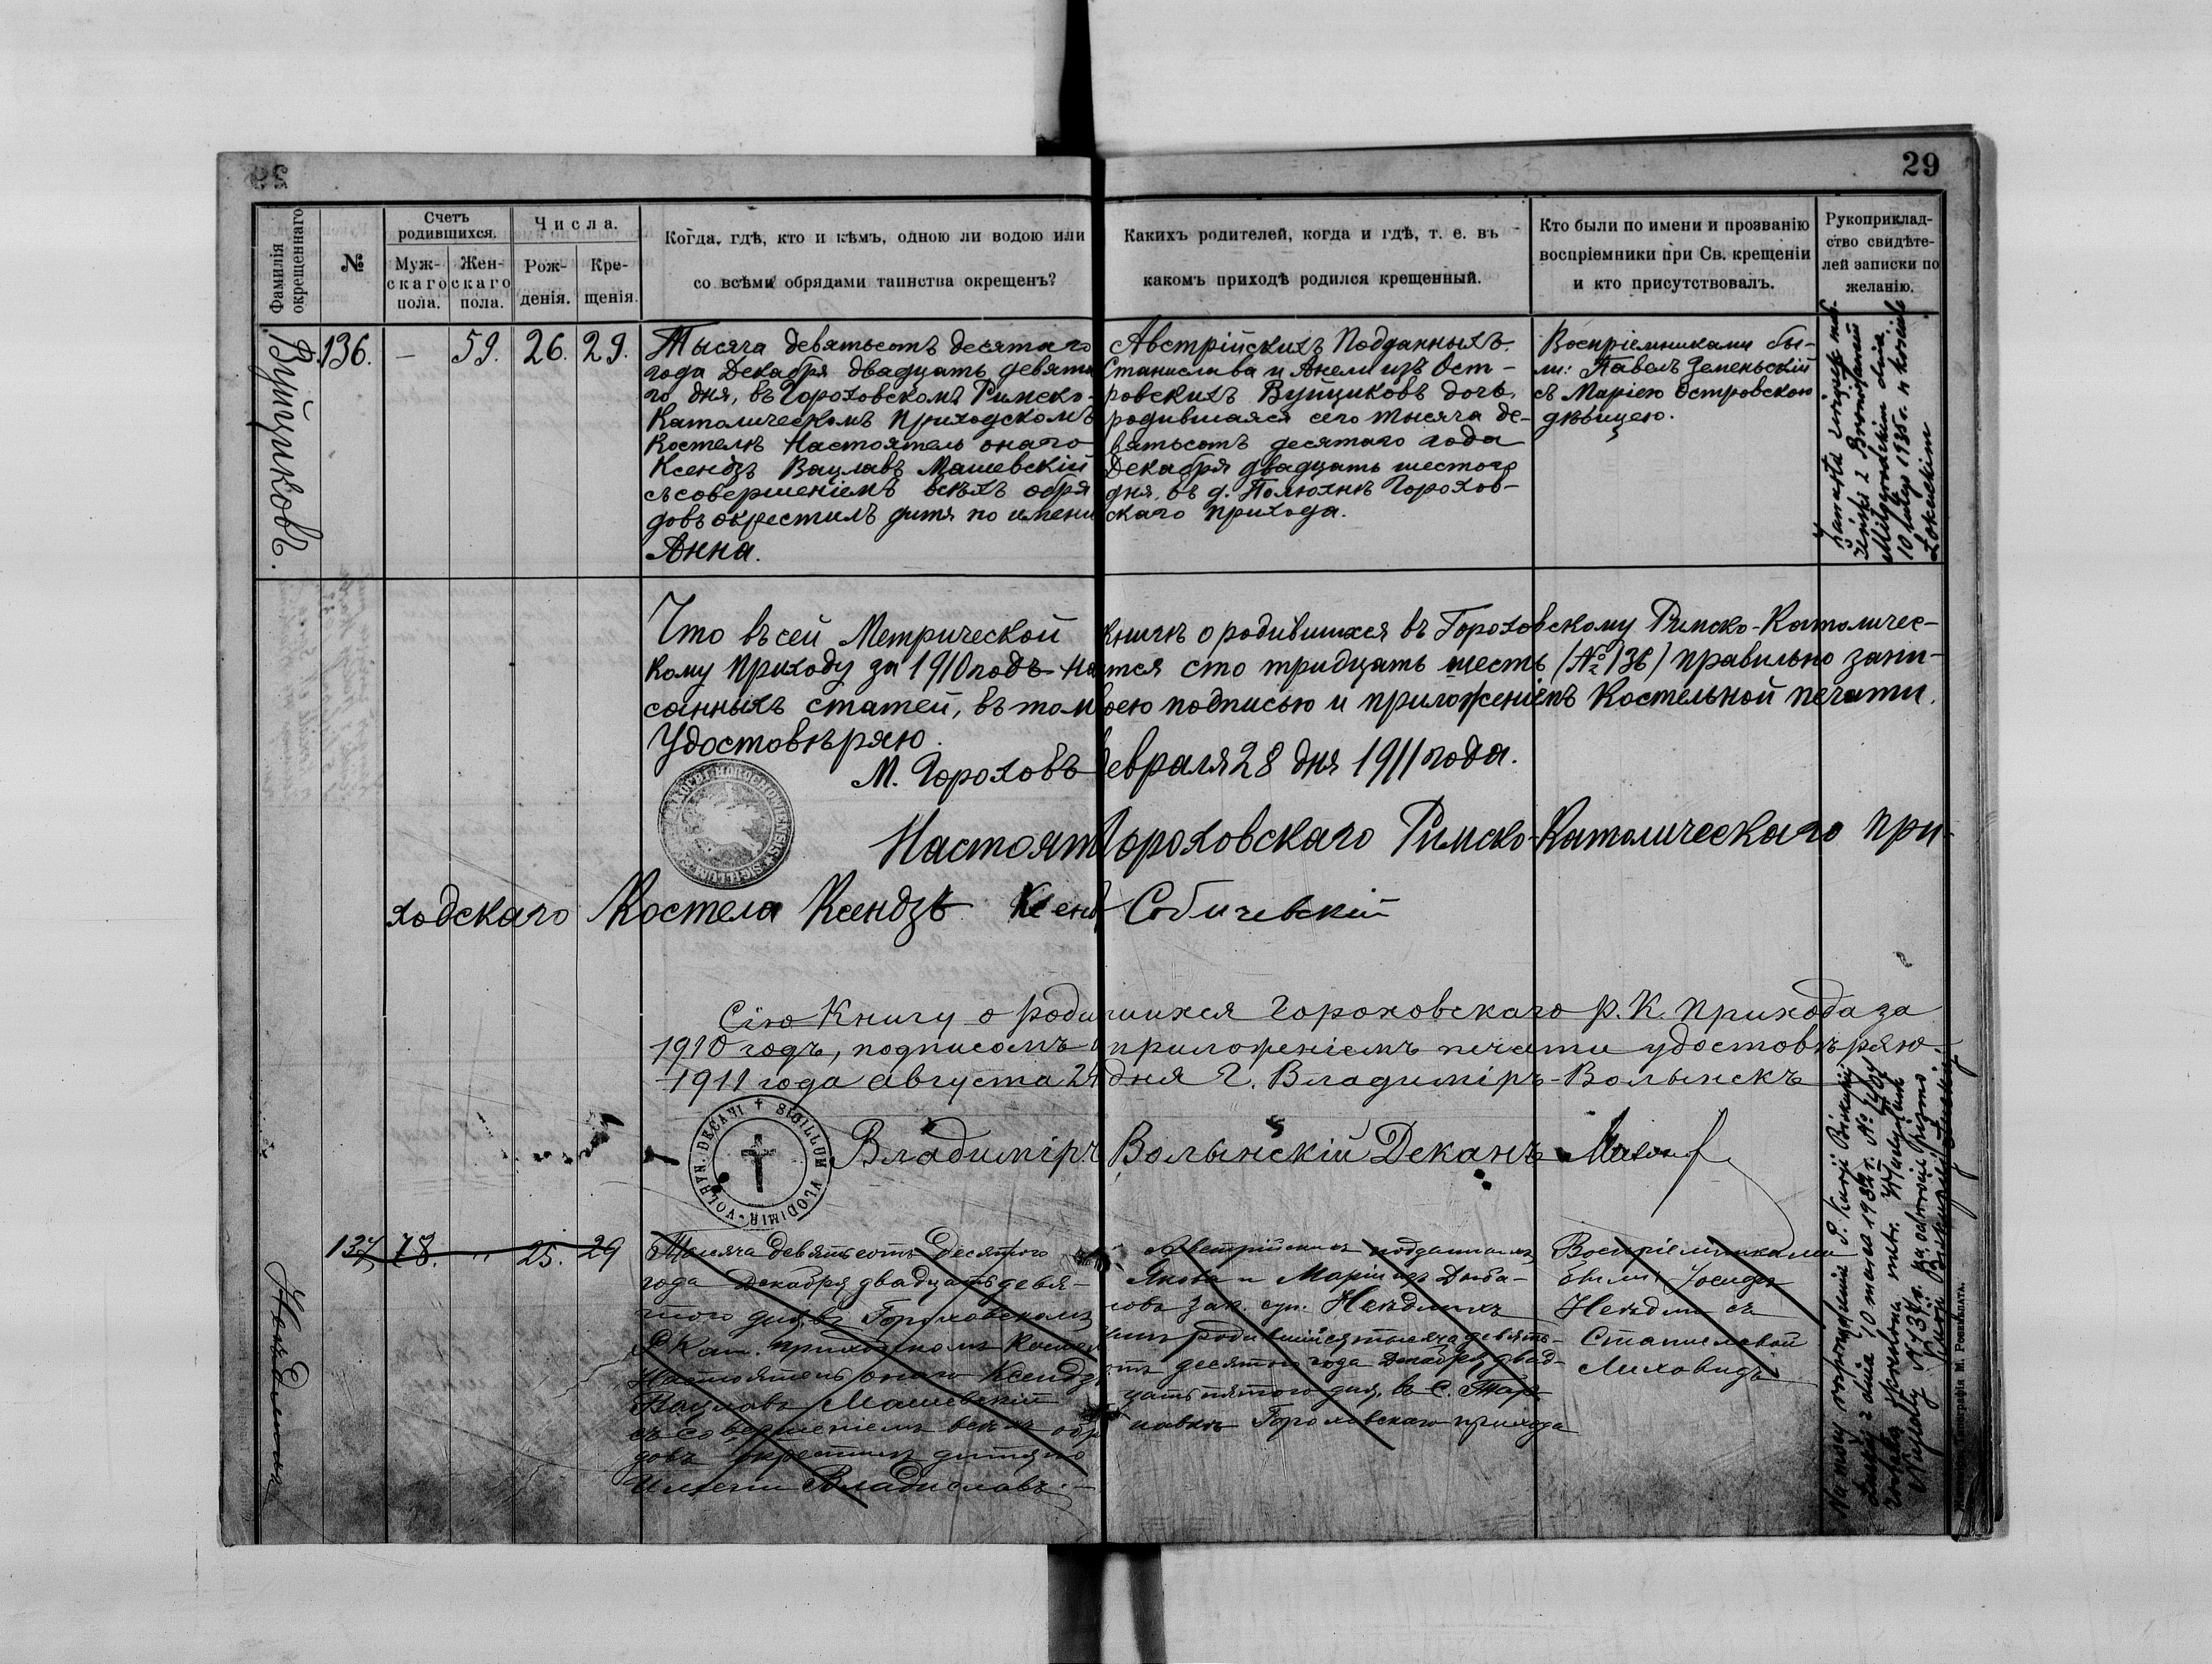 29
Фамилія окрещеннаго
№
Счетъ родившихся.
Муж-скаго пола.
Жен-скаго пола.
Числа.
Рож-денія.
Кре-щенія.
Когда, гдѣ, кто и кѣмъ, одною ли водою или
со всѣми обрядами таинства окрещенъ?
Какихъ родителей, когда и гдѣ, т. е. въ
какомъ приходѣ родился крещенный.
Кто были по имени и прозванію
воспріемники при Св. крещеніи
и кто присутствовалъ.
Рукоприклад-
ство свидѣте-
лей записки по
желанію.
Вуйциковъ.
136. — 59. 26. 29.
Тысяча девятьсотъ десятаго
года Декабря двадцать девята
го дня, въ Гороховскомъ Римско-
Католическомъ Приходскомъ
Костелѣ Настоятель онаго
Ксендзъ Вацлавъ Машевскій
съ совершеніемъ всѣхъ обря
довъ окрестилъ дитя по имени
Анна.
Австрійскихъ Подданныхъ
Станислава и Анели изъ Ост-
ровскихъ Вуйциковъ дочь,
родившаяся сего тысяча де-
вятьсотъ десятаго года
Декабря двадцать шестого
дня, въ д. Полюхнѣ Горохов-
скаго прихода.
Воспріемниками бы-
ли: Павелъ Земеньскій
съ Маріею Островскою
дѣвицею.
zawarła związek małż.
10 lutego 1935 r. w kościele
Что въ сей Метрической книгѣ о родившихся въ Гороховскому Римско-Католичес-
кому Приходу за 1910 годъ на тся сто тридцать шесть (№ 136) правильно запи-
санныхъ статей, въ том оею подписью и приложеніемъ Костельной печати.
Удостовѣряю.
М. Гороховъ евраля 28 дня 1911 года.
Настоят Гороховскаго Римско-Католическаго При-
ходскаго Костела Ксендзъ Ксенд Собичевскій
SIGILLUM
Сію Книгу о роди шихся Гороховскаго Р. К. Прихода за
1910 годъ, подписомъ и приложеніемъ печати удостовѣряю
1911 года Августа 24 дня г. Владиміръ-Волынскъ
SIGILLUM VLODIMIR-VOLHYN. DECANI
Владимір Волынскій Деканъ
137 78. " 25. 29
Тысяча девятьсотъ десятого
года Декабря двадцать девя-
того дня, въ Гороховскомъ
Р. Кат. приходскомъ Костел
Настоятель онаго Ксендз
Вацлавъ Машевскій
съ совершеніемъ всѣхъ обр
довъ окрестилъ дитя по
имени Владиславъ.—
Австрійскихъ подданныхъ
Якова и Маріи изъ
зак. суп.
родившійся тысяча девять-
отъ десятого года Декабря двад-
цать пятого дня, въ с.
Гороховскаго прихода
Воспріемниками
были Іосифъ
съ